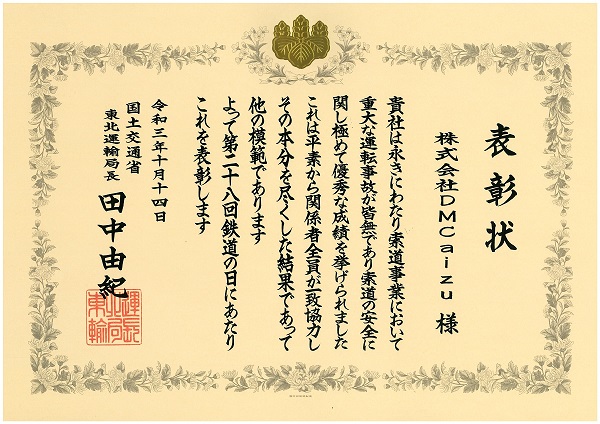 表彰状
株式会社DMCaizu 様
貴社は永きにわたり索道事業において
重大な運転事故が皆無であり索道の安全に
関し極めて優秀な成績を挙げられました
これは平業から関係者全員が一致協力し
その本分を尽くした結果であって
他の模範であります
よって第二十八回鉄道の日にあたり
これを表彰します
令和三年十月十四日
国土交通省
東北運輸局長
田中由紀